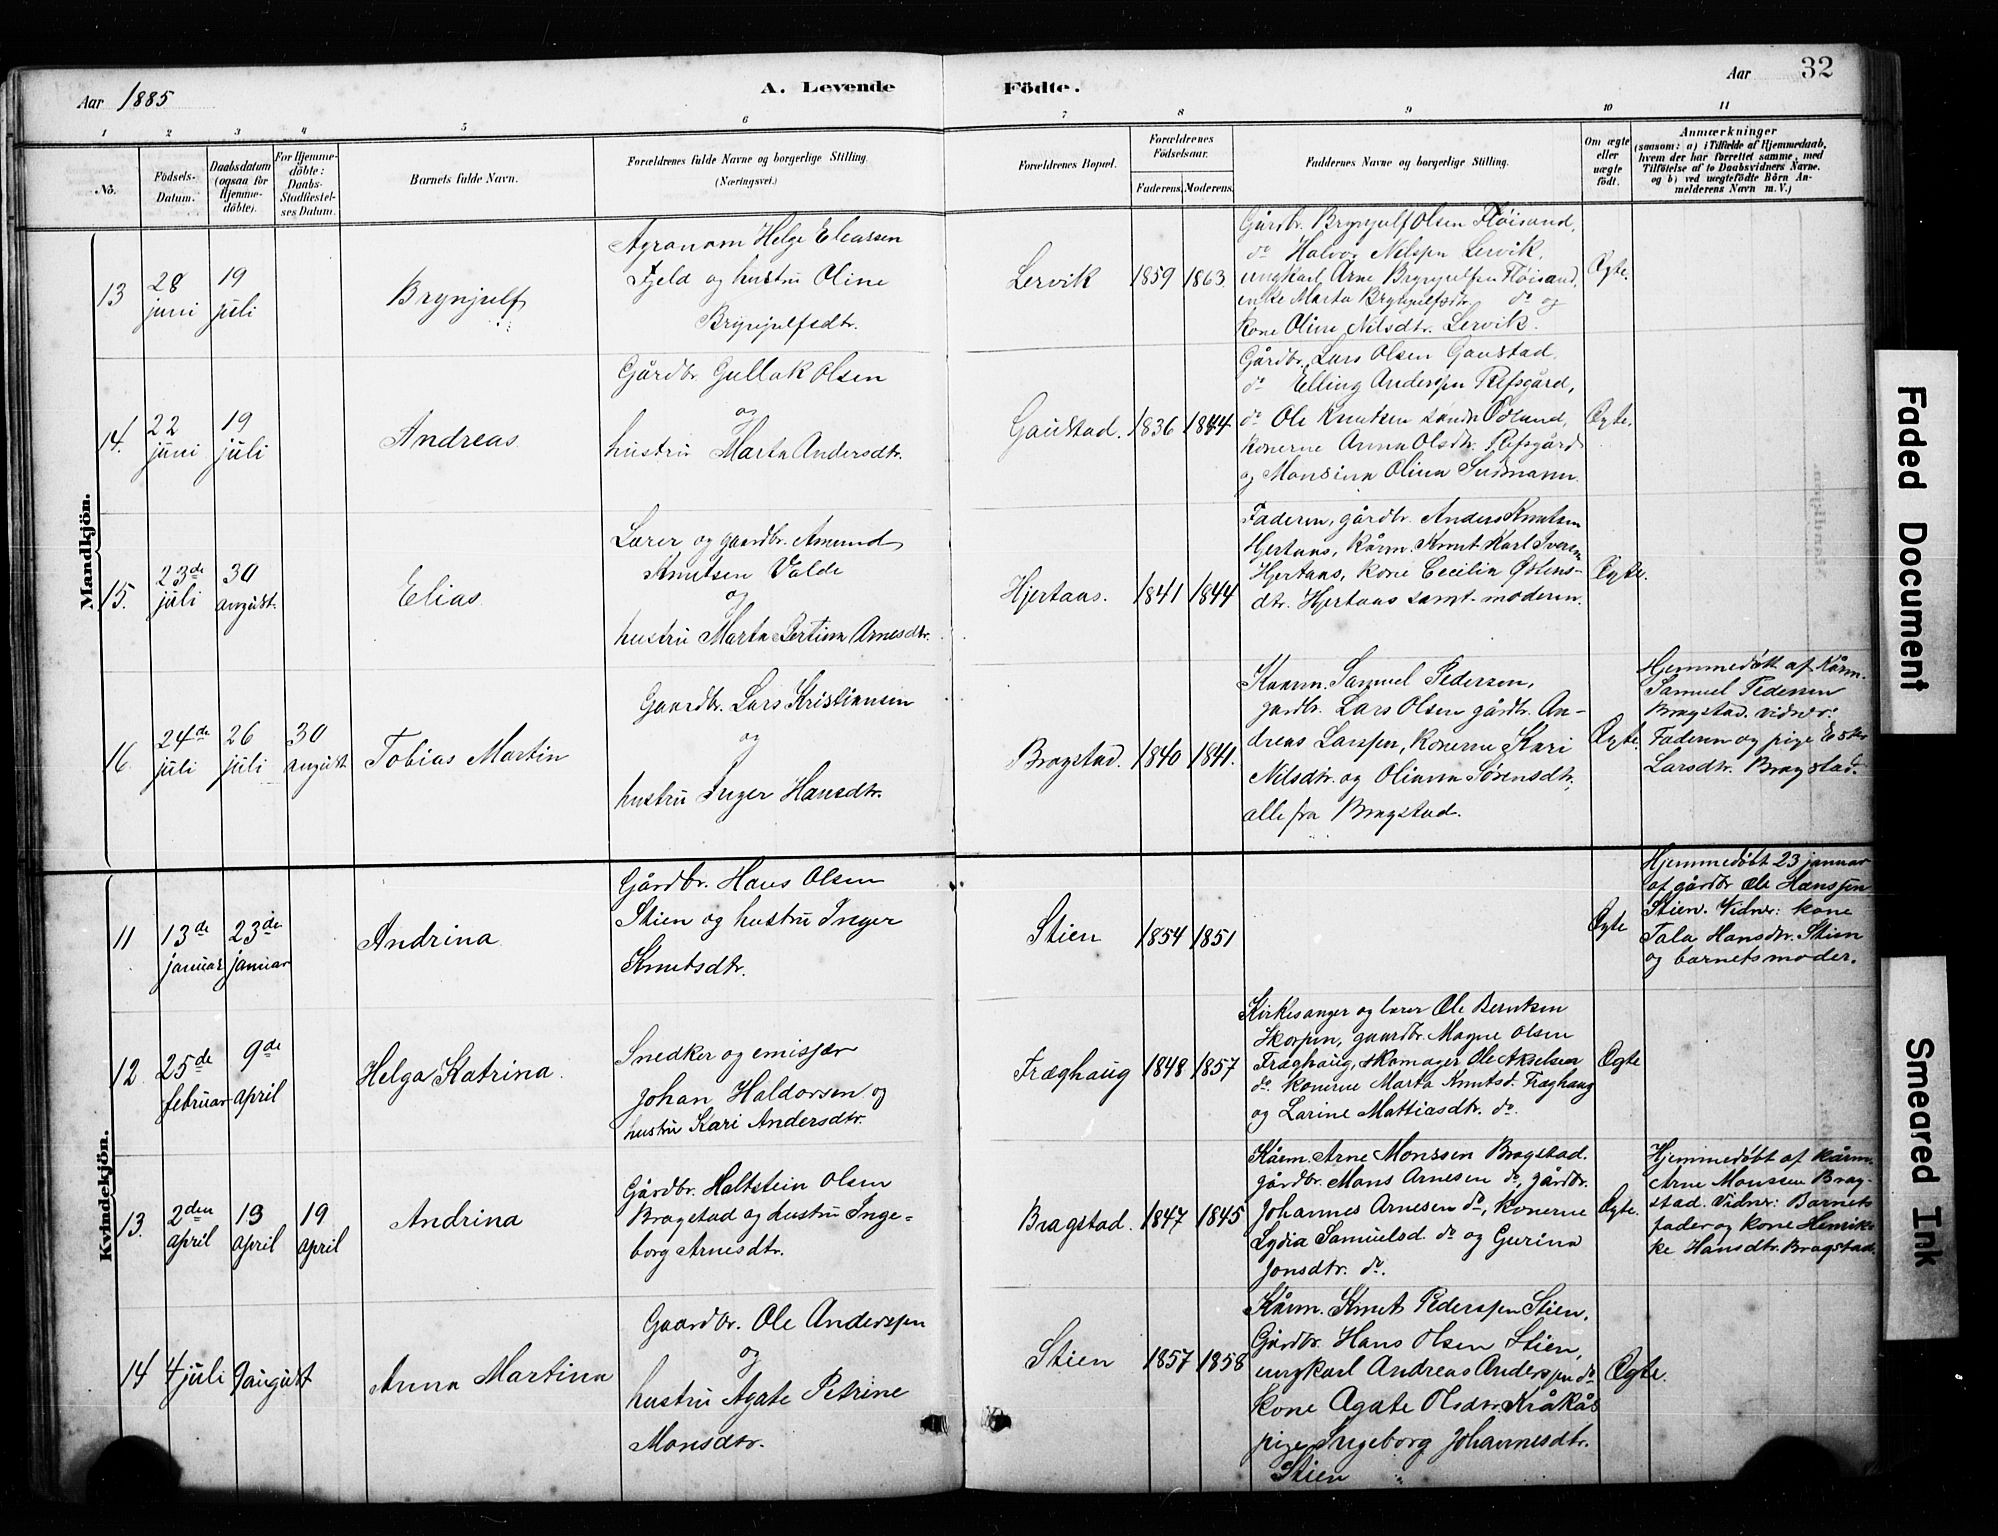 32
Aar 1885
A. Levende
Födte.
Aar
1 2 3 4 5 6 7 8 9 10 11
No.
Födsels-
Datum.
Daabsdatum
(ogsaa for
Hjemme-
döbte).
For Hjemme-
döbte:
Daabs-
Stadfæstel-
ses Datum.
Barnets fulde Navn.
Forældrenes fulde Navne og borgerlige Stilling.
(Næringsvei.)
Forældrenes Bopæl.
Forældrenes
Födselsaar.
Faderens. Moderens.
Faddernes Navne og borgerlige Stilling.
Om ægte
eller
uægte
født.
Anmærkninger
(saasom: a) i Tilfælde af Hjemmedaab,
hvem der har forrettet samme, med
Tilföielse af to Daabsvidners Navne.
og b) ved uægtefödte Börn An-
melderens Navn m. V.)
Mandkjön.
13
28
juni
19
juli
Brynjulf
Agronom Helge Eleassen
Fjeld og hustru Oline
Brynjulfsdtr.
Lervik
1859 1863
Gårdbr. Brynjulf Olsen Fløisand,
do Halvor Nilssen Lervik,
ungkarl Arne Brynjulfsen Fløisand,
enke Marta Brynjulfsdtr. do og
kone Oline Nilsdtr. Lervik.
Ægte.
14.
22
juni
19
juli
Andreas
Gårdbr. Gullak Olsen
og
hustru Marta Andersdtr.
Gaustad.
1836 1844
Gårdbr. Lars Olsen Gaustad.
do Elling Anderssen Refsgård,
do Ole Knutsen søndr Ødland,
konerne Anna Olsdtr. Refsgård
og Monsina Olina Susmann.
Ægte.
15.
23de
juli
30
august.
Elias
Lærer og gaardbr. Amund
Knutsen Valde
og
hustru Marta Bertine Arnesdtr.
Hjertaas.
1841 1844
Faderen, gårdbr. Anders Knutsen
Hjertaas, Kårm. Knut Karl Iversen
Hjertaas, kone Cecilia Østens-
dtr. Hjertaas samt moderen.
Ægte.
16.
24de
juli
26
juli
30
august
Tobias Martin
Gaardbr. Lars Kristiansen
og
hustru Inger Hansdtr.
Bragstad.
1840 1841.
Kaarm. Samuel Pedersen,
gardbr. Lars Olsen gårdbr. An-
dreas Larssen, konerne Kari
Nilsdtr. og Olianna Sørensdtr,
alle fra Bragstad.
Ægte.
Hjemmedøbt af Kårm.
Samuel Pedersen
Bragstad. vidner:
Faderen og pige Ester
Larsdtr. Bragstad.
Kvindekjön.
11
13de
januar
23de
januar
Andrina
Gårdbr. Hans Olsen
Stien og hustru Inger
Knutsdtr.
Stien
1854 1851
Ægte
Hjemmedøbt 23 januar
af gårdbr Ole Hanssen
Stien. Vidner: kone
Tala Hansdtr. Stien
og barnets moder.
12
25de
februar
9de
april
Helga Katrina.
Snedker og emissær
Johan Haldorsen og
hustru Kari Andersdtr.
Fræghaug
1848 1857
Kirkesanger og lærer Ole Berntsen
Skorpen, gaardbr. Magne Olsen
Fræghaug, skomager Ole Akselsen
do. konerne Marta Knutsd. Fræghaug
og Larine Mattiasdtr. do.
Ægte
13.
2den
april
13
april
19
april
Andrina
Gårdbr. Haltstein Olsen
Bragstad og hustru Inge-
borg Arnesdtr.
Bragstad.
1847 1845
Kårm. Arne Monssen Bragstad.
gårdbr. Mons Arnesen do, gårdbr.
Johannes Arnesen do, konerne
Lydia Samuelsd. do og Gurina
Jonsdtr. do.
Ægte.
Hjemmedøbt af kårm.
Arne Monssen Brag-
stad. Vidner: Barnets
fader og kone Henrik-
ke Hansdtr. Bragstad.
14
4 juli
9 august
Anna Martina
Gaardbr. Ole Anderssen
og
hustru Agate Petrine
Monsdtr.
Stien
1857 1858
Kårm. Knut Pederssen Stien,
Gårdbr. Hans Olsen Stien,
ungkarl Andreas Anderssen do
kone Agate Olsdtr. Kråkås
pige Ingeborg Johannesdtr.
Stien
Ægte.
Faded Document
Smeared Ink